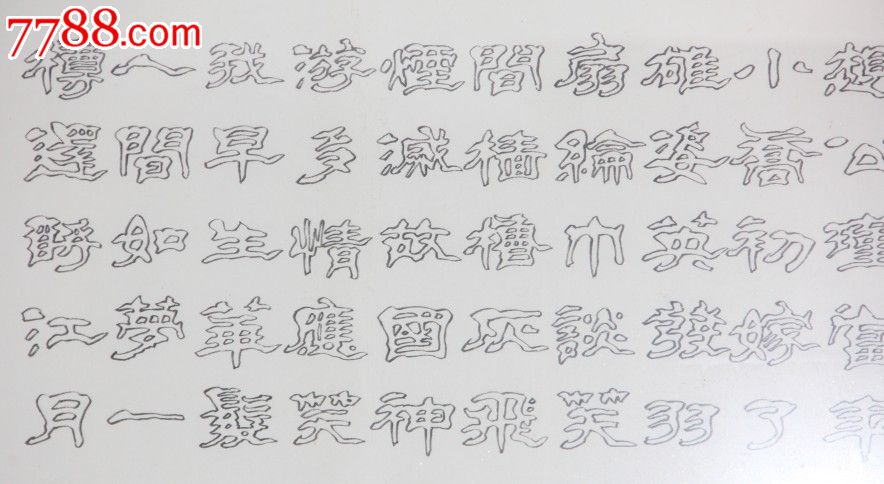 想公瑾當年
小喬初嫁了
雄姿英發羽
扇綸巾談笑
間檣櫓灰飛
煙滅故國神
游多情應笑
我早生華髮
人間如夢一
樽還酹江月
7788.com